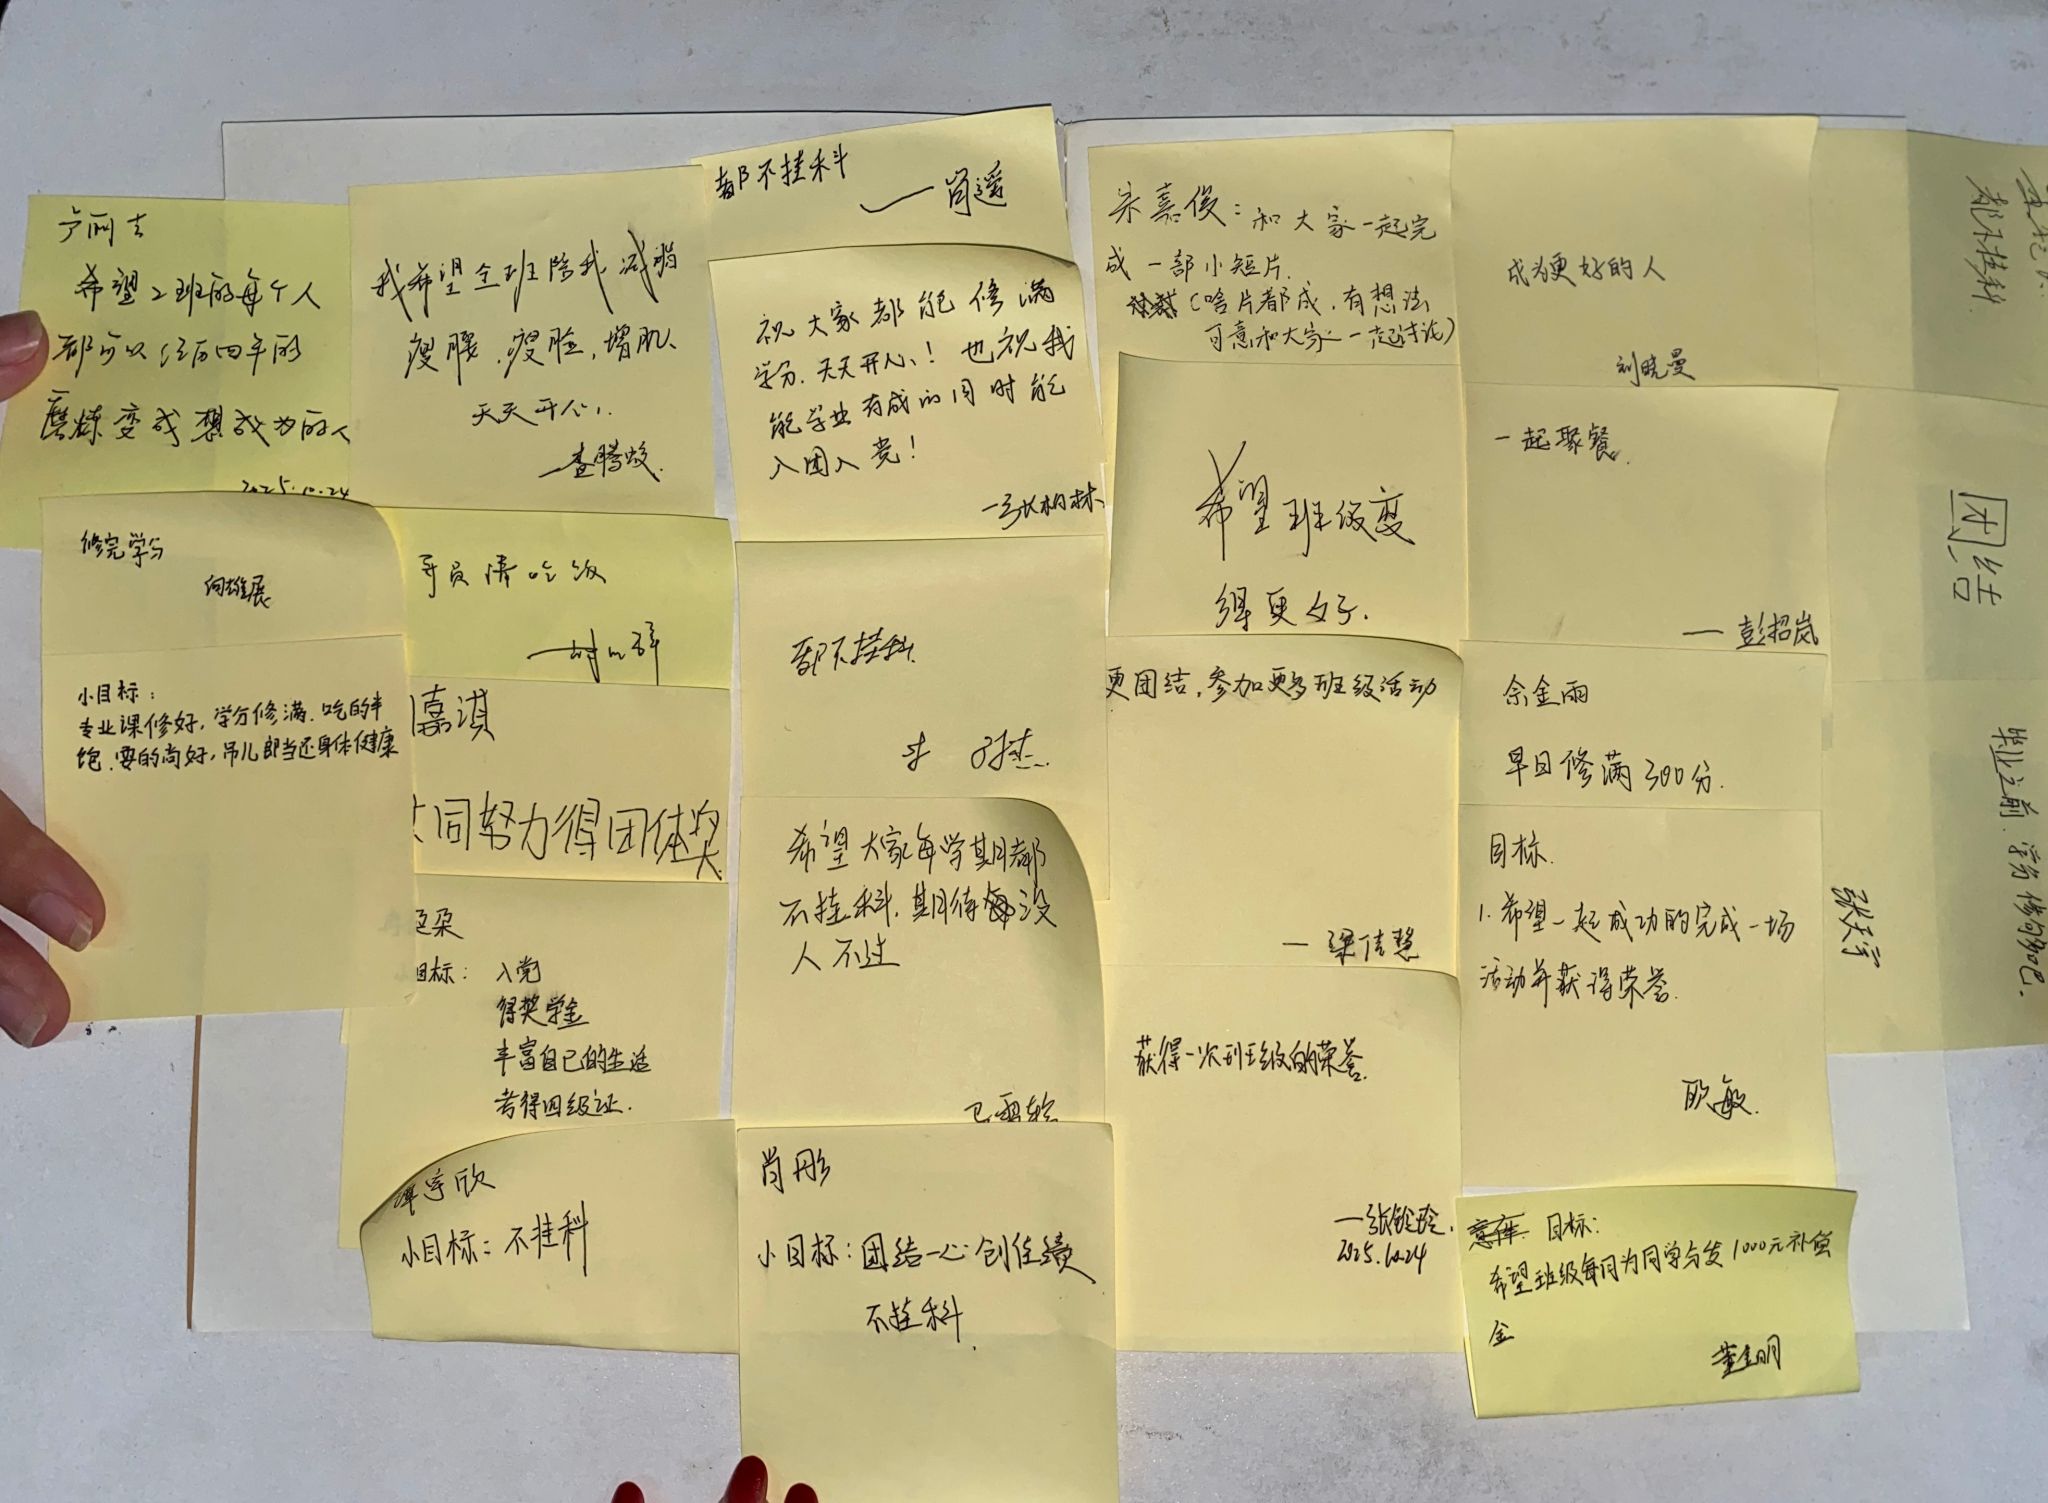 希望2班的每个人
都可以经历四年的
磨炼变成想成为的人
2025.10.24
我希望全班陪我减脂
瘦腰、瘦脸、增肌、
天天开心、
—查腾蛟
都不挂科
——肖遥
祝大家都能修满
学分、天天开心!也祝我
能学业有成的同时能
入团入党!
—张栩林
朱嘉俊:和大家一起完
成一部小短片.
(啥片都成,有想法
可意和大家一起讨论)
成为更好的人
刘晓曼
都不挂科
修完学分
向雄展
员请吃饭
都不挂科
希望班级变
得更好.
一起聚餐
——彭招岚
团结
小目标:
专业课修好,学分修满、吃的半
饱、耍的尚好,吊儿郎当还身体健康
嘉淇
同努力得团体奖
更团结,参加更多班级活动
—梁佳慧
佘金雨
早日修满300分.
毕业之前,学分修够吧.
张天宇
希望大家每学期都
不挂科,期待每没
人不过
朵
目标: 入党
得奖学金
丰富自己的生活
考得四级证.
获得一次班级的荣誉
2025.10.24
目标.
1.希望一起成功的完成一场
活动并获得荣誉.
欧敏.
谭宇欣
小目标:不挂科
肖彤
小目标:团结一心创佳绩
不挂科.
目标:
希望班级每月为同学与发1000元补偿
金
董金明